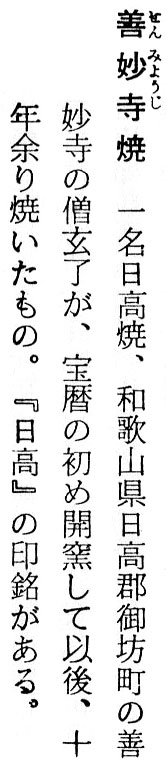 善妙寺焼 一名日高焼、和歌山県日高郡御坊町の善
ぜんみようじ
妙寺の僧玄了が、宝暦の初め開窯して以後、十
年余り焼いたもの。『日高』の印銘がある。